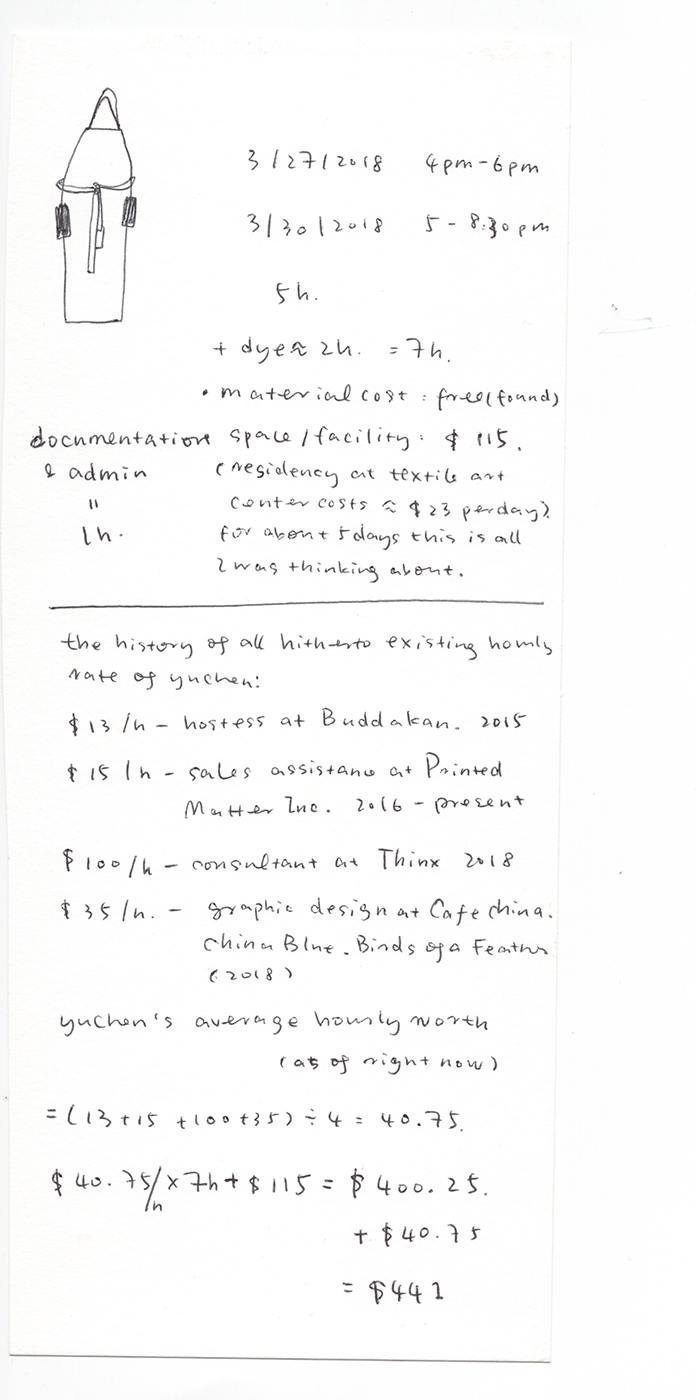 3/27/2018 4pm-6pm
3/30/2018 5-8:30pm
5h.
+ dye ≈ 2h. = 7h.
• material cost: free(found)
documentation space/facility: $ 115.
& admin (residency at textile art
" center costs ≈ $23 per day).
1h. for about 5 days this is all
I was thinking about.
the history of all hitherto existing hourly
rate of yuchen:
$13/h - hostess at Buddakan. 2015
$15/h - sales assistance at Printed
Matter Inc. 2016 - present
$100/h - consultant at Thinx 2018
$35/h. - graphic design at Cafe China.
China Blue. Birds of a Feather
(2018)
yuchen's average hourly worth
(as of right now)
=(13+15+100+35)÷4=40.75.
$40.75/h×7h+$115=$400.25.
+ $40.75
= $441